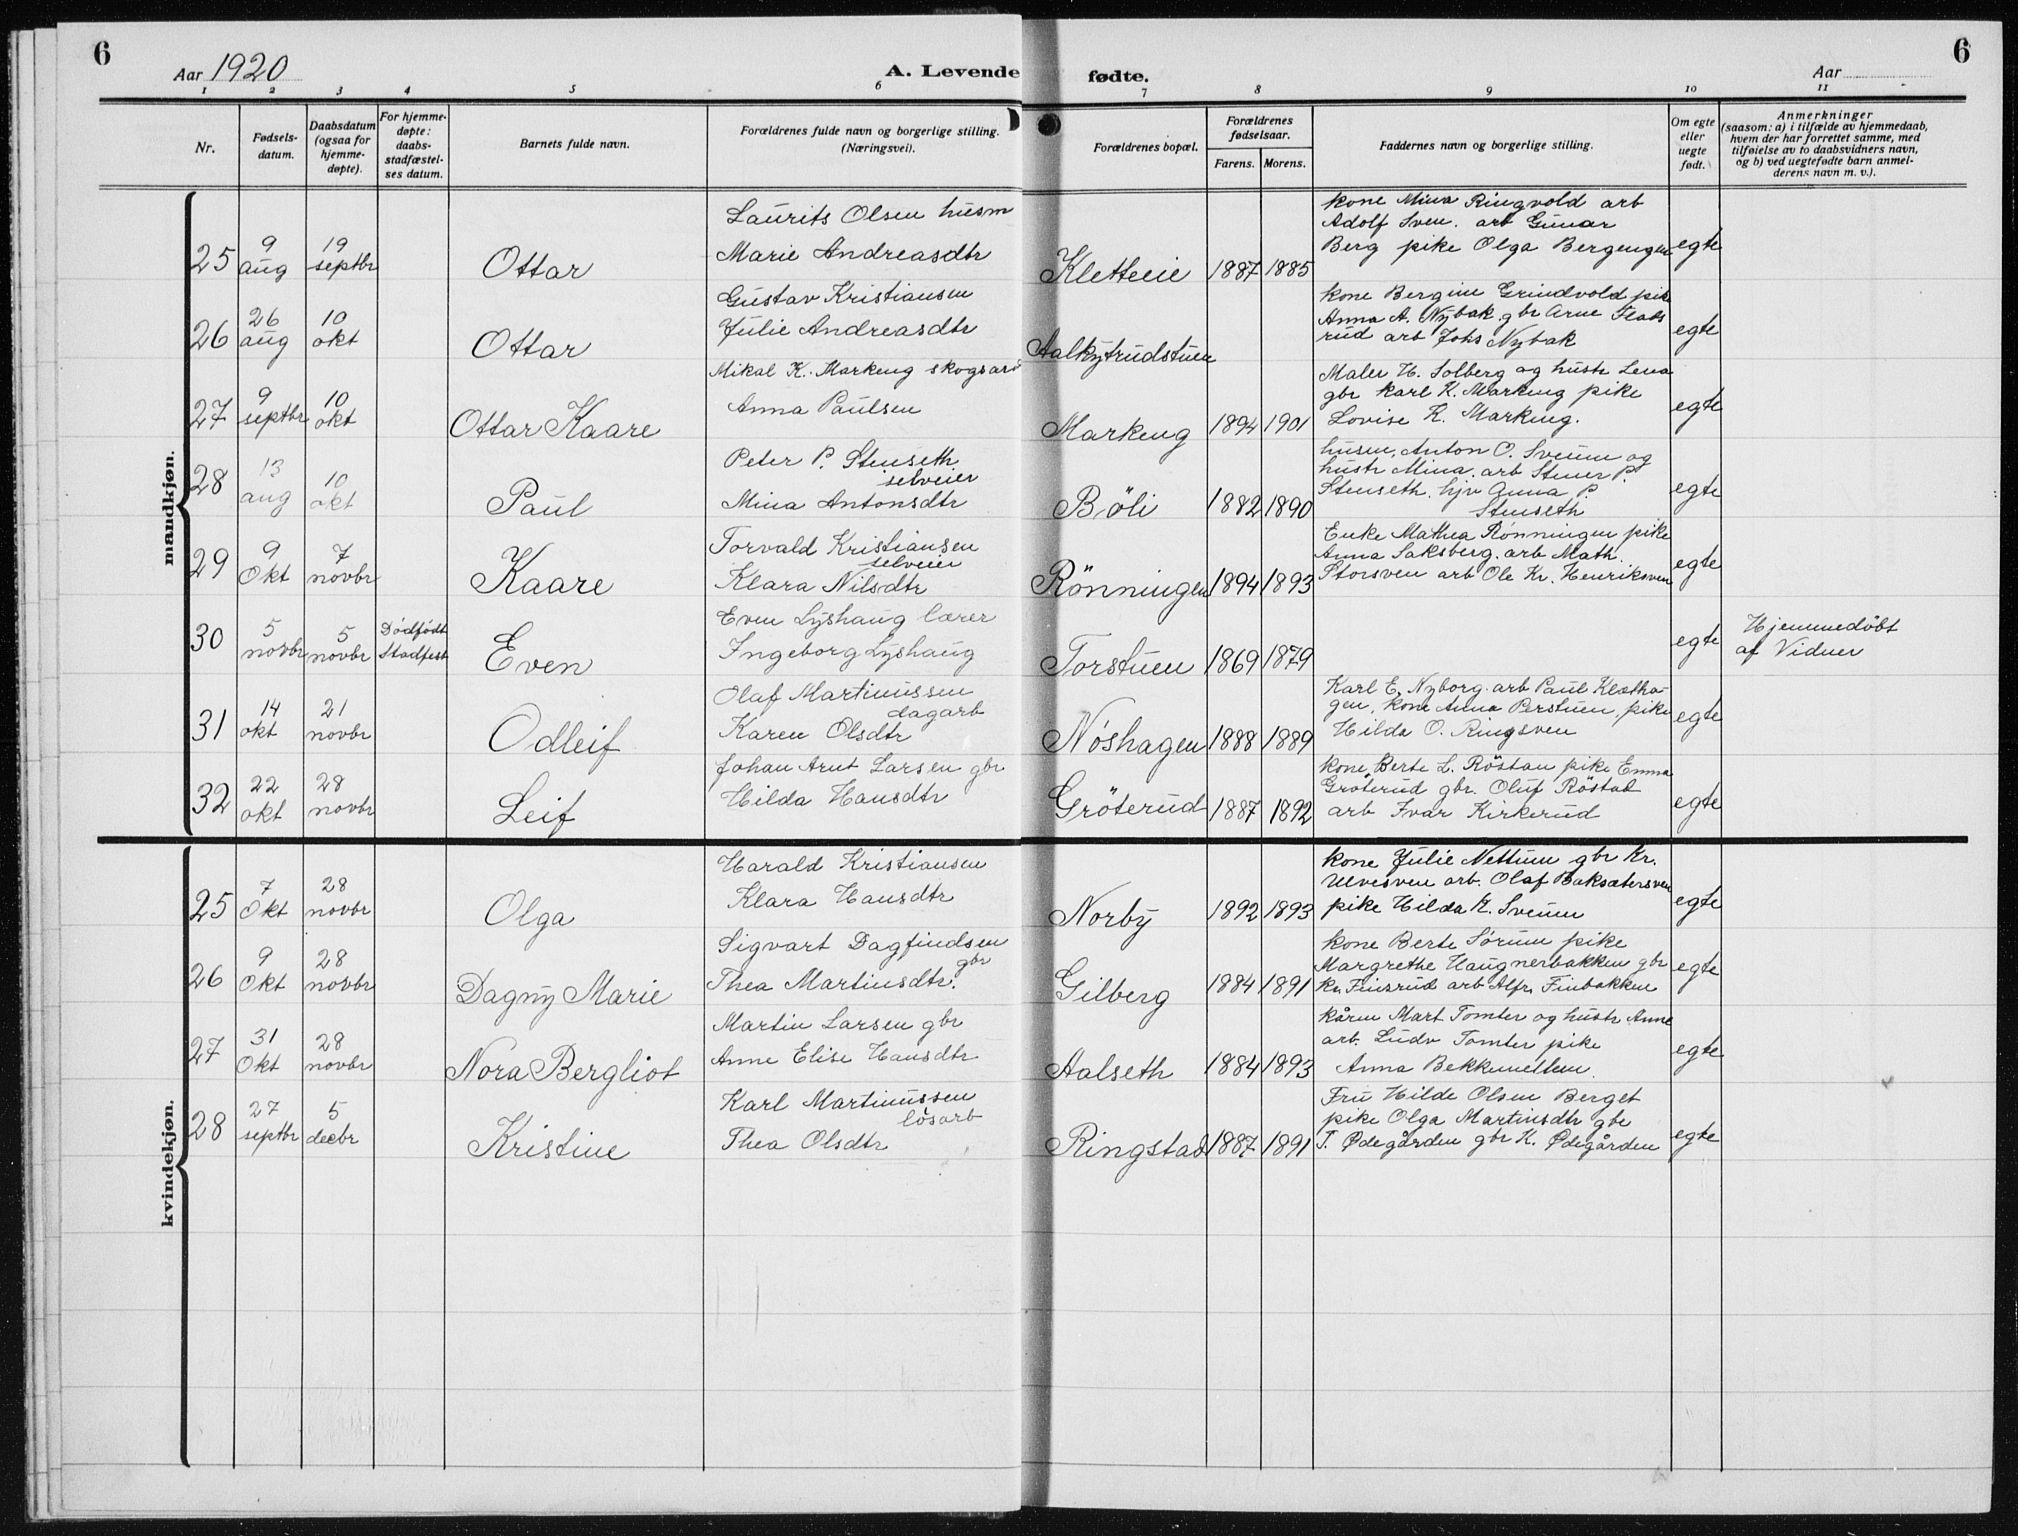 6
6
Aar 1920
A. Levende fødte.
Aar
1 2 3 4 5 6 7 8 9 10 11
Nr.
Fødsels-
datum.
Daabsdatum
(ogsaa for
hjemme-
døpte).
For hjemme-
døpte:
daabs-
stadfæstel-
ses datum.
Barnets fulde navn.
Forældrenes fulde navn og borgerlige stilling.
(Næringsvei).
Forældrenes bopæl.
Forældrenes
fødselsaar.
Farens. Morens.
Faddernes navn og borgerlige stilling.
Om egte
eller
uegte
født.
Anmerkninger
(saasom: a) i tilfælde av hjemmedaab,
hvem der har forrettet samme, med
tilføielse av to daabsvidners navn,
og b) ved uegtefødte barn anmel-
derens navn m. v.).
mandkjøn.
25
9
aug
19
septbr
Ottar
Laurits Olsen husm
Marie Andreasdtr
Kletteie
1887 1885
kone Mina Ringvold arb
Adolf Sven. arb Gunar
Berg pike Olga Bergengen
egte
26
26
aug
10
okt
Ottar
Gustav Kristiansen
Julie Andreasdtr
Aalkytrudstuen
kone Bergine Grindvold pike
Anna A. Nybak. gbr Arne
rud arb Johs Nybak
egte
27
9
septbr
10
okt
Ottar Kaare
Mikal K. Markeng skogsarb
Anna Paulsen
Markeng
1894 1901
Maler H. Solberg og hustr Lena
gbr Karl K. Markeng pike
Lovise K. Markeng.
egte
28
13
aug
10
okt
Paul
Peter P. Stenseth
selveier
Mina Antonsdtr
Böli
1882 1890
husm. Anton O. Sveum og
hustr Mina. arb Stener P.
Stenseth. hjv Anna P.
Stenseth
egte
29
9
Okt
7
novbr
Kaare
Torvald Kristiansen
selveier
Klara Nilsdtr
Rönningen
1894 1893
Enke Mathea Rönningen pike
Anna Saksberg. arb Math.
Storsven arb Ole Kr. Henriksven
egte
30
5
novbr
5
novbr
Dödfödt
Stadfest
Even
Even Lyshaug lærer
Ingeborg Lyshaug
Torstuen
1869 1879
egte
Hjemmedöbt
af Vidner
31
14
okt
21
novbr
Odleif
Olaf Martinussen
dagarb
Karen Olsdtr
Nöshagen
1888 1889
Karl E. Nyborg. arb Paul Kletha-
gen, kone Anna Perstuen, pike
Hilda O. Ringsven
egte
32
22
okt
28
novbr
Leif
Johan Arnt Larsen gbr
Hilda Hansdtr
Gröterud
1887 1892
kone Berte L. Röstan pike Emma
Gröterud gbr. Oluf Röstad
arb Ivar Kirkerud
egte
kvindekjøn.
25
7
Okt
28
novbr
Olga
Harald Kristiansen
Klara Hansdtr
Norby
1892 1893
kone Julie Nettum gbr Kr.
Ulvesven arb. Olaf Baksætersven
pike Hilda K. Sveum
egte
26
9
Okt
28
novbr
Dagny Marie
Sigvart Dagfindsen
gbr
Thea Martinsdtr.
Gilberg
1884 1891
kone Berte Sørum pike
Margrethe Haugnerbakken gbr
Kr. Finsrud arb Alfr. Finbakken
egte
27
31
Okt
28
novbr
Nora Bergliot
Martin Larsen gbr
Anne Elise Hansdtr
Aalseth
1884 1893
Mart Tomter og hustr Anne
arb. Ludv Tomter pike
Anna Bekkemellem.
egte
28
27
septbr
5
decbr
Kristine
Karl Martinussen
lösarb
Thea Olsdtr
Ringstad
1887 1891
Fru Hilde Olsen Berget
pike Olga Martinsdtr gbr
T. Ødegården gbr K. Ødegården
egte